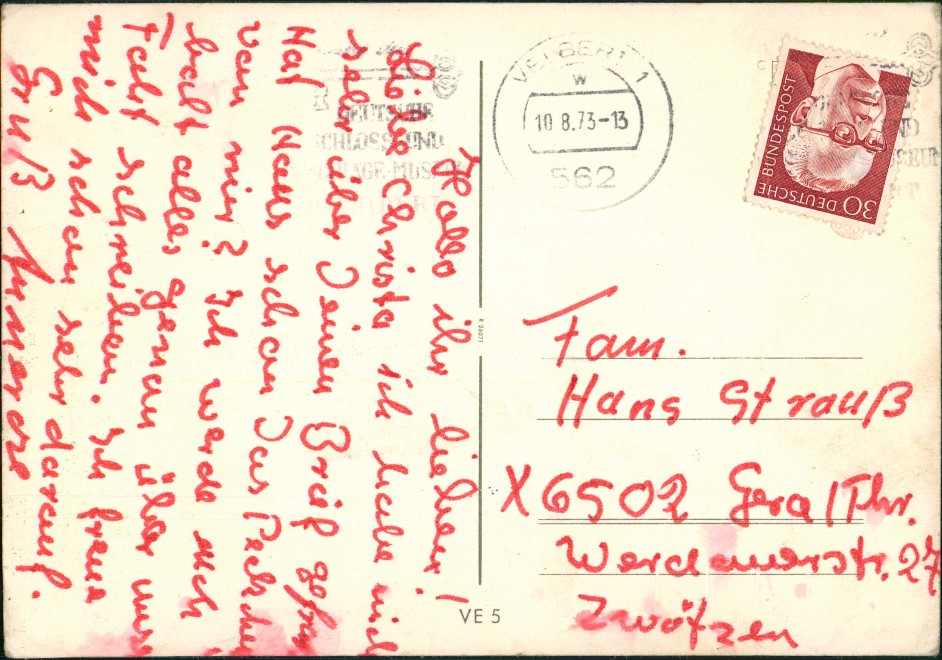 Hallo ihr lieben!
Liebe Christa ich habe mich
sehr über Deinen Brief
Hat Hans schon Das
von mir? Ich werde euch
bald alles genau über
Fahrt schreiben. Ich freue
mich schon sehr darauf.
Gruß Annerose
DEUTSCHE
SCHLOSS-UND
VELBERT 1
w
10.8.73-13
562
DEUTSCHE BUNDESPOST
30
Fam.
Hans Strauß
X 6502 Gera/Thr.
Werdauerstr. 27
Zwötzen
VE 5